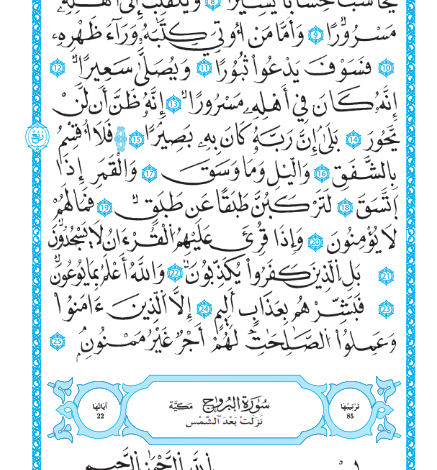 يُحَاسَبُ حِسَابًا يَسِيرًا ٨ وَيَنقَلِبُ إِلَىٰٓ أَهْلِهِۦ
مَسْرُورًا ٩ وَأَمَّا مَنْ أُوتِىَ كِتَٰبَهُۥ وَرَآءَ ظَهْرِهِۦ
١٠ فَسَوْفَ يَدْعُوا۟ ثُبُورًا ١١ وَيَصْلَىٰ سَعِيرًا ١٢
إِنَّهُۥ كَانَ فِىٓ أَهْلِهِۦ مَسْرُورًا ١٣ إِنَّهُۥ ظَنَّ أَن لَّن
يَحُورَ ١٤ بَلَىٰٓ إِنَّ رَبَّهُۥ كَانَ بِهِۦ بَصِيرًا ١٥ فَلَآ أُقْسِمُ
بِٱلشَّفَقِ ١٦ وَٱلَّيْلِ وَمَا وَسَقَ ١٧ وَٱلْقَمَرِ إِذَا
ٱتَّسَقَ ١٨ لَتَرْكَبُنَّ طَبَقًا عَن طَبَقٍ ١٩ فَمَا لَهُمْ
لَا يُؤْمِنُونَ ٢٠ وَإِذَا قُرِئَ عَلَيْهِمُ ٱلْقُرْءَانُ لَا يَسْجُدُونَ
٢١ بَلِ ٱلَّذِينَ كَفَرُوا۟ يُكَذِّبُونَ ٢٢ وَٱللَّهُ أَعْلَمُ بِمَا يُوعُونَ
٢٣ فَبَشِّرْهُم بِعَذَابٍ أَلِيمٍ ٢٤ إِلَّا ٱلَّذِينَ ءَامَنُوا۟
وَعَمِلُوا۟ ٱلصَّٰلِحَٰتِ لَهُمْ أَجْرٌ غَيْرُ مَمْنُونٍۭ ٢٥
ترتيبها 85 سُورَةُ البُرُوجِ مَكيَّة آياتها 22
نَزَلَتْ بَعْدَ الشَّمْس
بِسْمِ ٱللَّهِ ٱلرَّحْمَٰنِ ٱلرَّحِيمِ